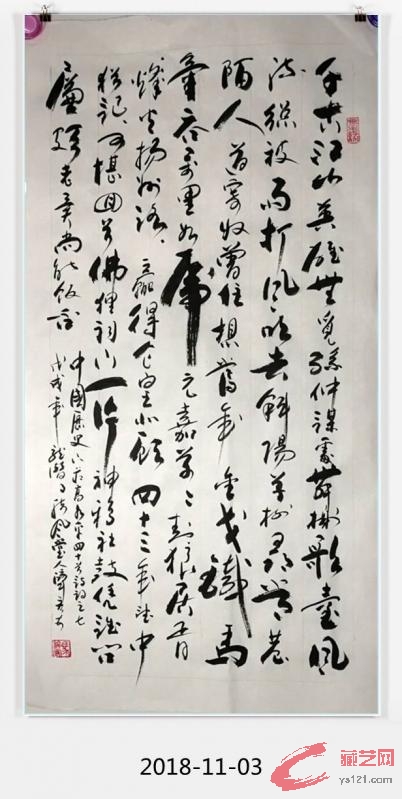 千古江山英雄无觅孙仲谋处舞榭歌台风
流总被雨打风吹去斜阳草树寻常巷
陌人道寄奴曾住想舊年金戈鐵馬
氣吞萬里如虎元嘉草々封狼居胥
赢得仓皇北顾四十三年望中
烽火揚州路
犹记可堪回首佛狸祠下一片神鸦社鼓凭谁问
廉頗老矣尚能饭否
中國歷史
四十首诗词之七
戊戌年
2018-11-03
藏艺网
ys121.com